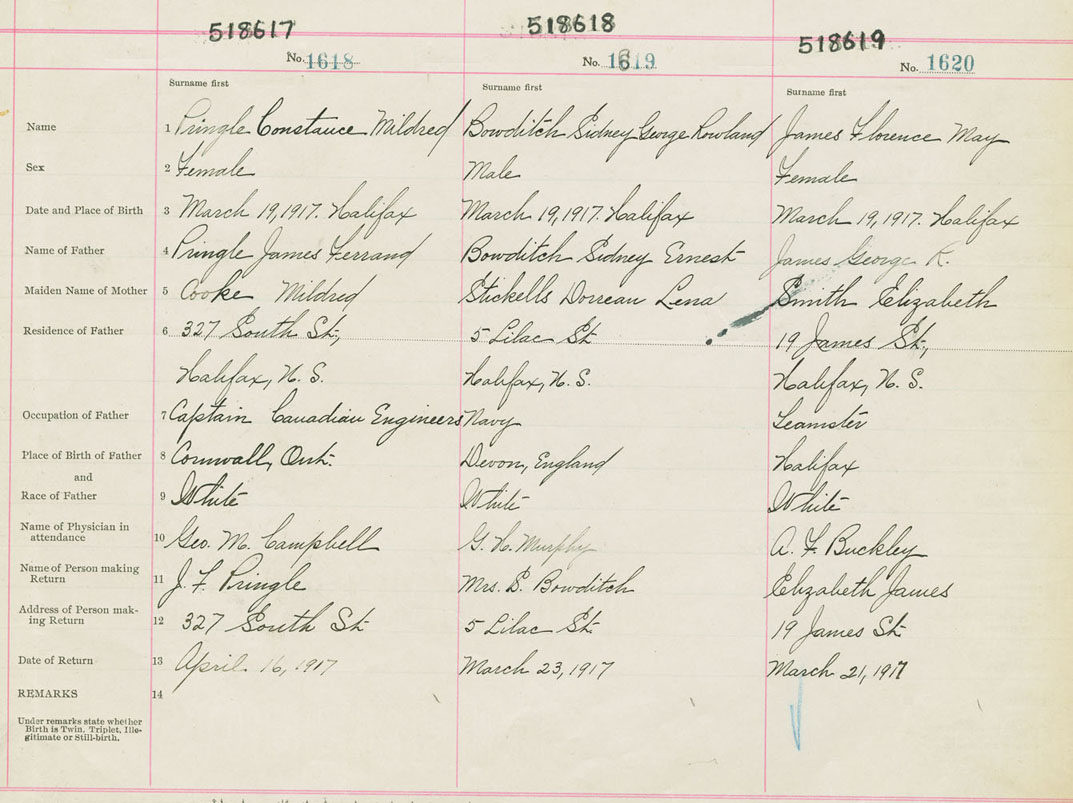 518617 518618 518619
No. 1618 No. 1619 No. 1620
Surname first Surname first Surname first
Name 1 Pringle Constance Mildred Bowditch Sidney George Rowland James Florence May
Sex 2 Female Male Female
Date and Place of Birth 3 March 19, 1917. Halifax March 19, 1917. Halifax March 19, 1917. Halifax
Name of Father 4 Pringle James Ferrand Bowditch Sidney Ernest James George R.
Maiden Name of Mother 5 Cooke Mildred Stickells Dorreau Lena Smith Elizabeth
Residence of Father 6 327 South St., 5 Lilac St. 19 James St.,
Halifax, N. S. Halifax, N. S. Halifax, N. S.
Occupation of Father 7 Captain Canadian Engineers Navy Teamster
Place of Birth of Father 8 Cornwall, Ont. Devon, England Halifax
and
Race of Father 9 White White White
Name of Physician in
attendance 10 Geo. M. Campbell G. H. Murphy A. F. Buckley
Name of Person making
Return 11 J. F. Pringle Mrs. S. Bowditch Elizabeth James
Address of Person mak-
ing Return 12 327 South St. 5 Lilac St. 19 James St.
Date of Return 13 April 16, 1917 March 23, 1917 March 21, 1917
REMARKS 14
Under remarks state whether
Birth is Twin, Triplet, Ille-
gitimate or Still-birth.